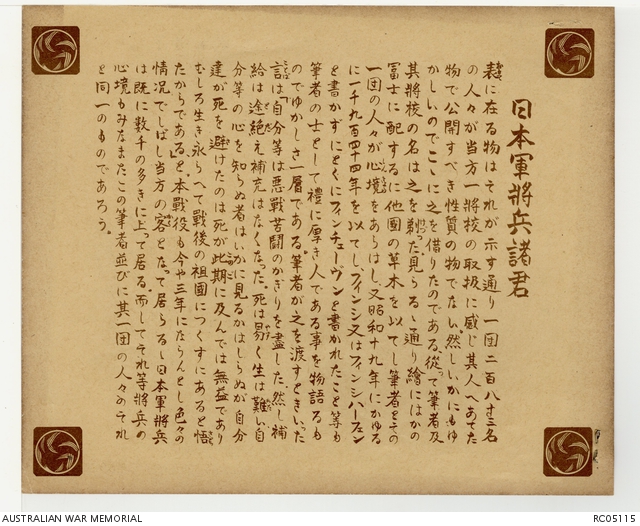 日本軍將兵諸君
裁に在る物はそれが示す通り一団二百八十三名
の人々が当方一將校の取扱に感じ其人へあてた
物で公開すべき性質の物でない。然しいかにもゆ
かしいのでこゝに之を借りたのである。從って筆者及
其將校の名は之を剃った。見らるゝ通り繪にはかの
冨士に配するに他國の草木を以てし筆者とその
一団の人々が心境をあらはし、又昭和十九年にかゆる
に一千九百四十四年を以てし、フィンシ又はフィンシハーフェン
を書かずにとくにフィンチェーヴンと書かれたこと等も
筆者の士として禮に厚き人である事を物語るも
のでゆかしさ一層である。筆者が之を渡すときいった
言は「自分等は悪戰苦鬪のかぎりを盡した。然し補
給は途絶え補充はなくなった。死は易く生は難い。自
分等の心を知らぬ者はいかに見るかはしらぬが自分
達が死を避けたのは死が此期に及んでは無益であり
むしろ生き永らへて戰後の祖國につくすにあると悟
たからである」と。本戰役も今や三年にならんとし色々の
情況でしばし当方の客となって居らるゝ日本軍將兵
は既に数千の多きに上って居る。而してそれ等將兵の
心境もみなまたこの筆者並びに其一団の人々のそれ
と同一のものであろう。
AUSTRALIAN WAR MEMORIAL
RC05115